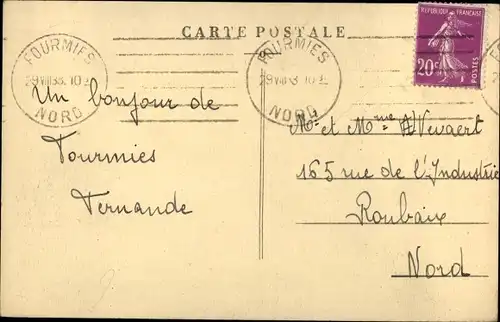 CARTE POSTALE
FOURMIES
NORD
FOURMIES
NORD
REPUBLIQUE FRANÇAISE
20c
POSTES
Un bonjour de
Fourmies
Fernande
Mr et Mme A Vevaert
165 rue de l'Industrie
Roubaix
Nord